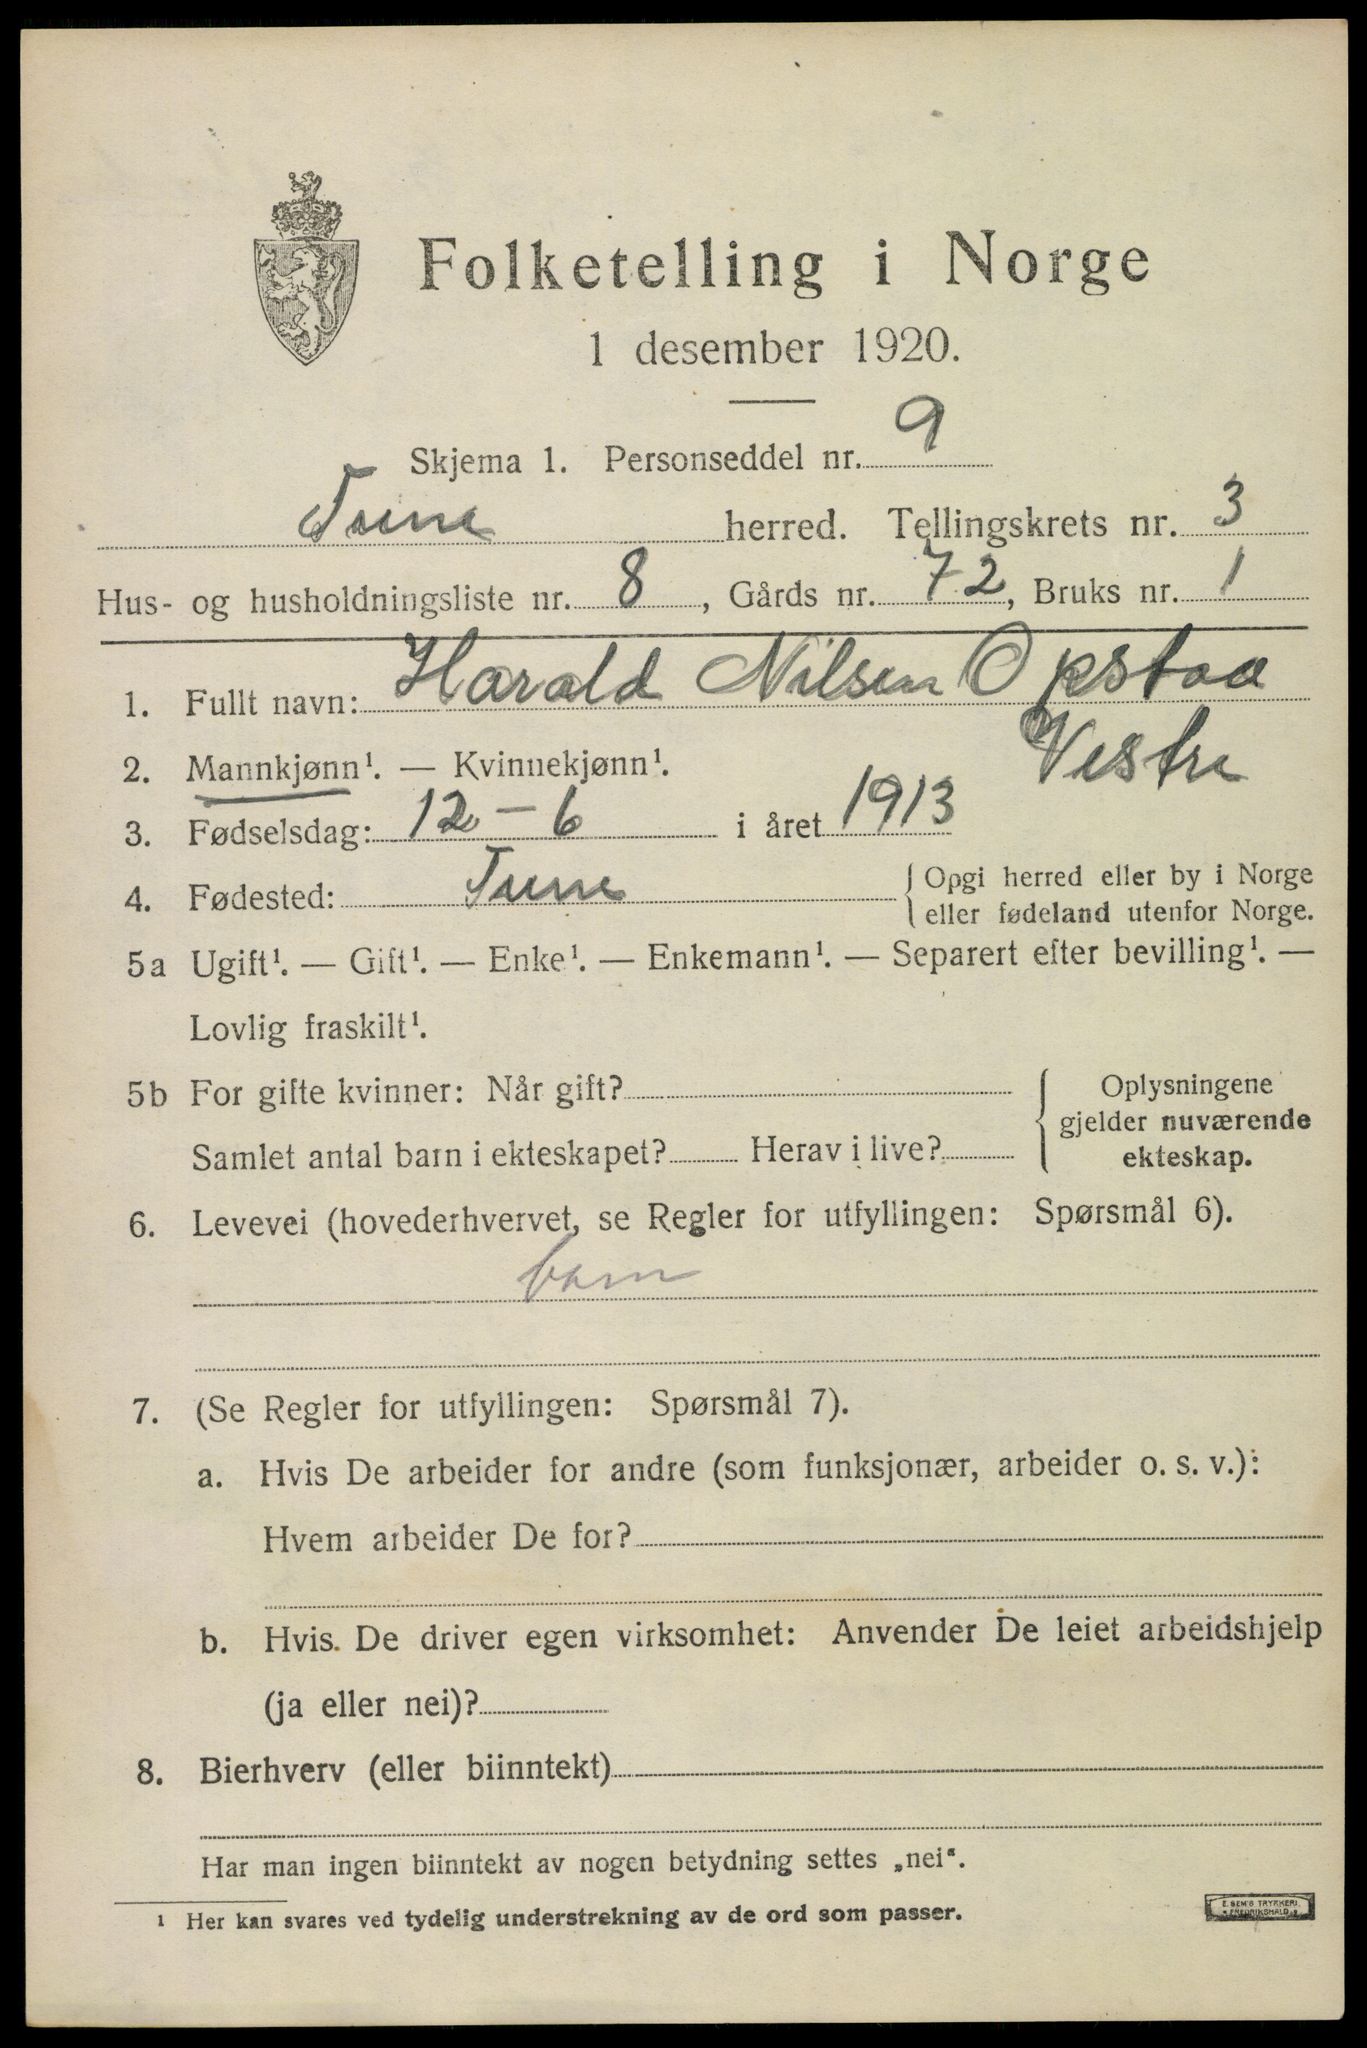 Folketelling i Norge
1 desember 1920.
Skjema 1. Personseddel nr. 9
Tune herred. Tellingskrets nr. 3
Hus- og husholdningsliste nr. 8, Gårds nr. 72, Bruks nr. 1
1. Fullt navn: Harald Nilsen Opstaa
Vestre
2. Mannkjønn¹. — Kvinnekjønn¹.
3. Fødselsdag: 12-6 i året 1913
4. Fødested: Tune { Opgi herred eller by i Norge
eller fødeland utenfor Norge.
5a Ugift¹. — Gift¹. — Enke¹. — Enkemann¹. — Separert efter bevilling¹. —
Lovlig fraskilt¹.
5b For gifte kvinner: Når gift?
Samlet antal barn i ekteskapet? Herav i live?
{ Oplysningene
gjelder nuværende
ekteskap.
6. Levevei (hovederhvervet, se Regler for utfyllingen: Spørsmål 6).
barn
7. (Se Regler for utfyllingen: Spørsmål 7).
a. Hvis De arbeider for andre (som funksjonær, arbeider o. s. v.):
Hvem arbeider De for?
b. Hvis De driver egen virksomhet: Anvender De leiet arbeidshjelp
(ja eller nei)?
8. Bierhverv (eller biinntekt)
Har man ingen biinntekt av nogen betydning settes „nei“.
¹ Her kan svares ved tydelig understrekning av de ord som passer.
E. SEM'S TRYKKERI
FREDRIKSHALD